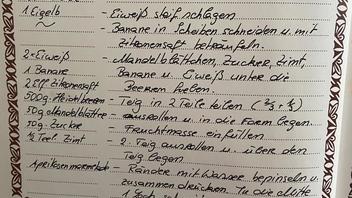 1 Eigelb - Eiweiß steif schlagen
- Banane in Scheiben schneiden u. mit
Zitronensaft beträufeln.
2 Eiweiß - Mandelblättchen, Zucker, Zimt,
1 Banane Banane u. Eiweiß unter die
2 Eßl Zitronensaft Beeren heben.
500g - Teig in 2 Teile teilen (2/3 + 1/3)
50g Mandelblätter - ausrollen u. in die Form legen.
50g Zucker - Fruchtmasse einfüllen
½ Teel Zimt - 2. Teig ausrollen u. über den
Teig legen
Aprikosenmarmelade - Ränder mit Wasser bepinseln u.
zusammendrücken. In die Mitte
1 Loch